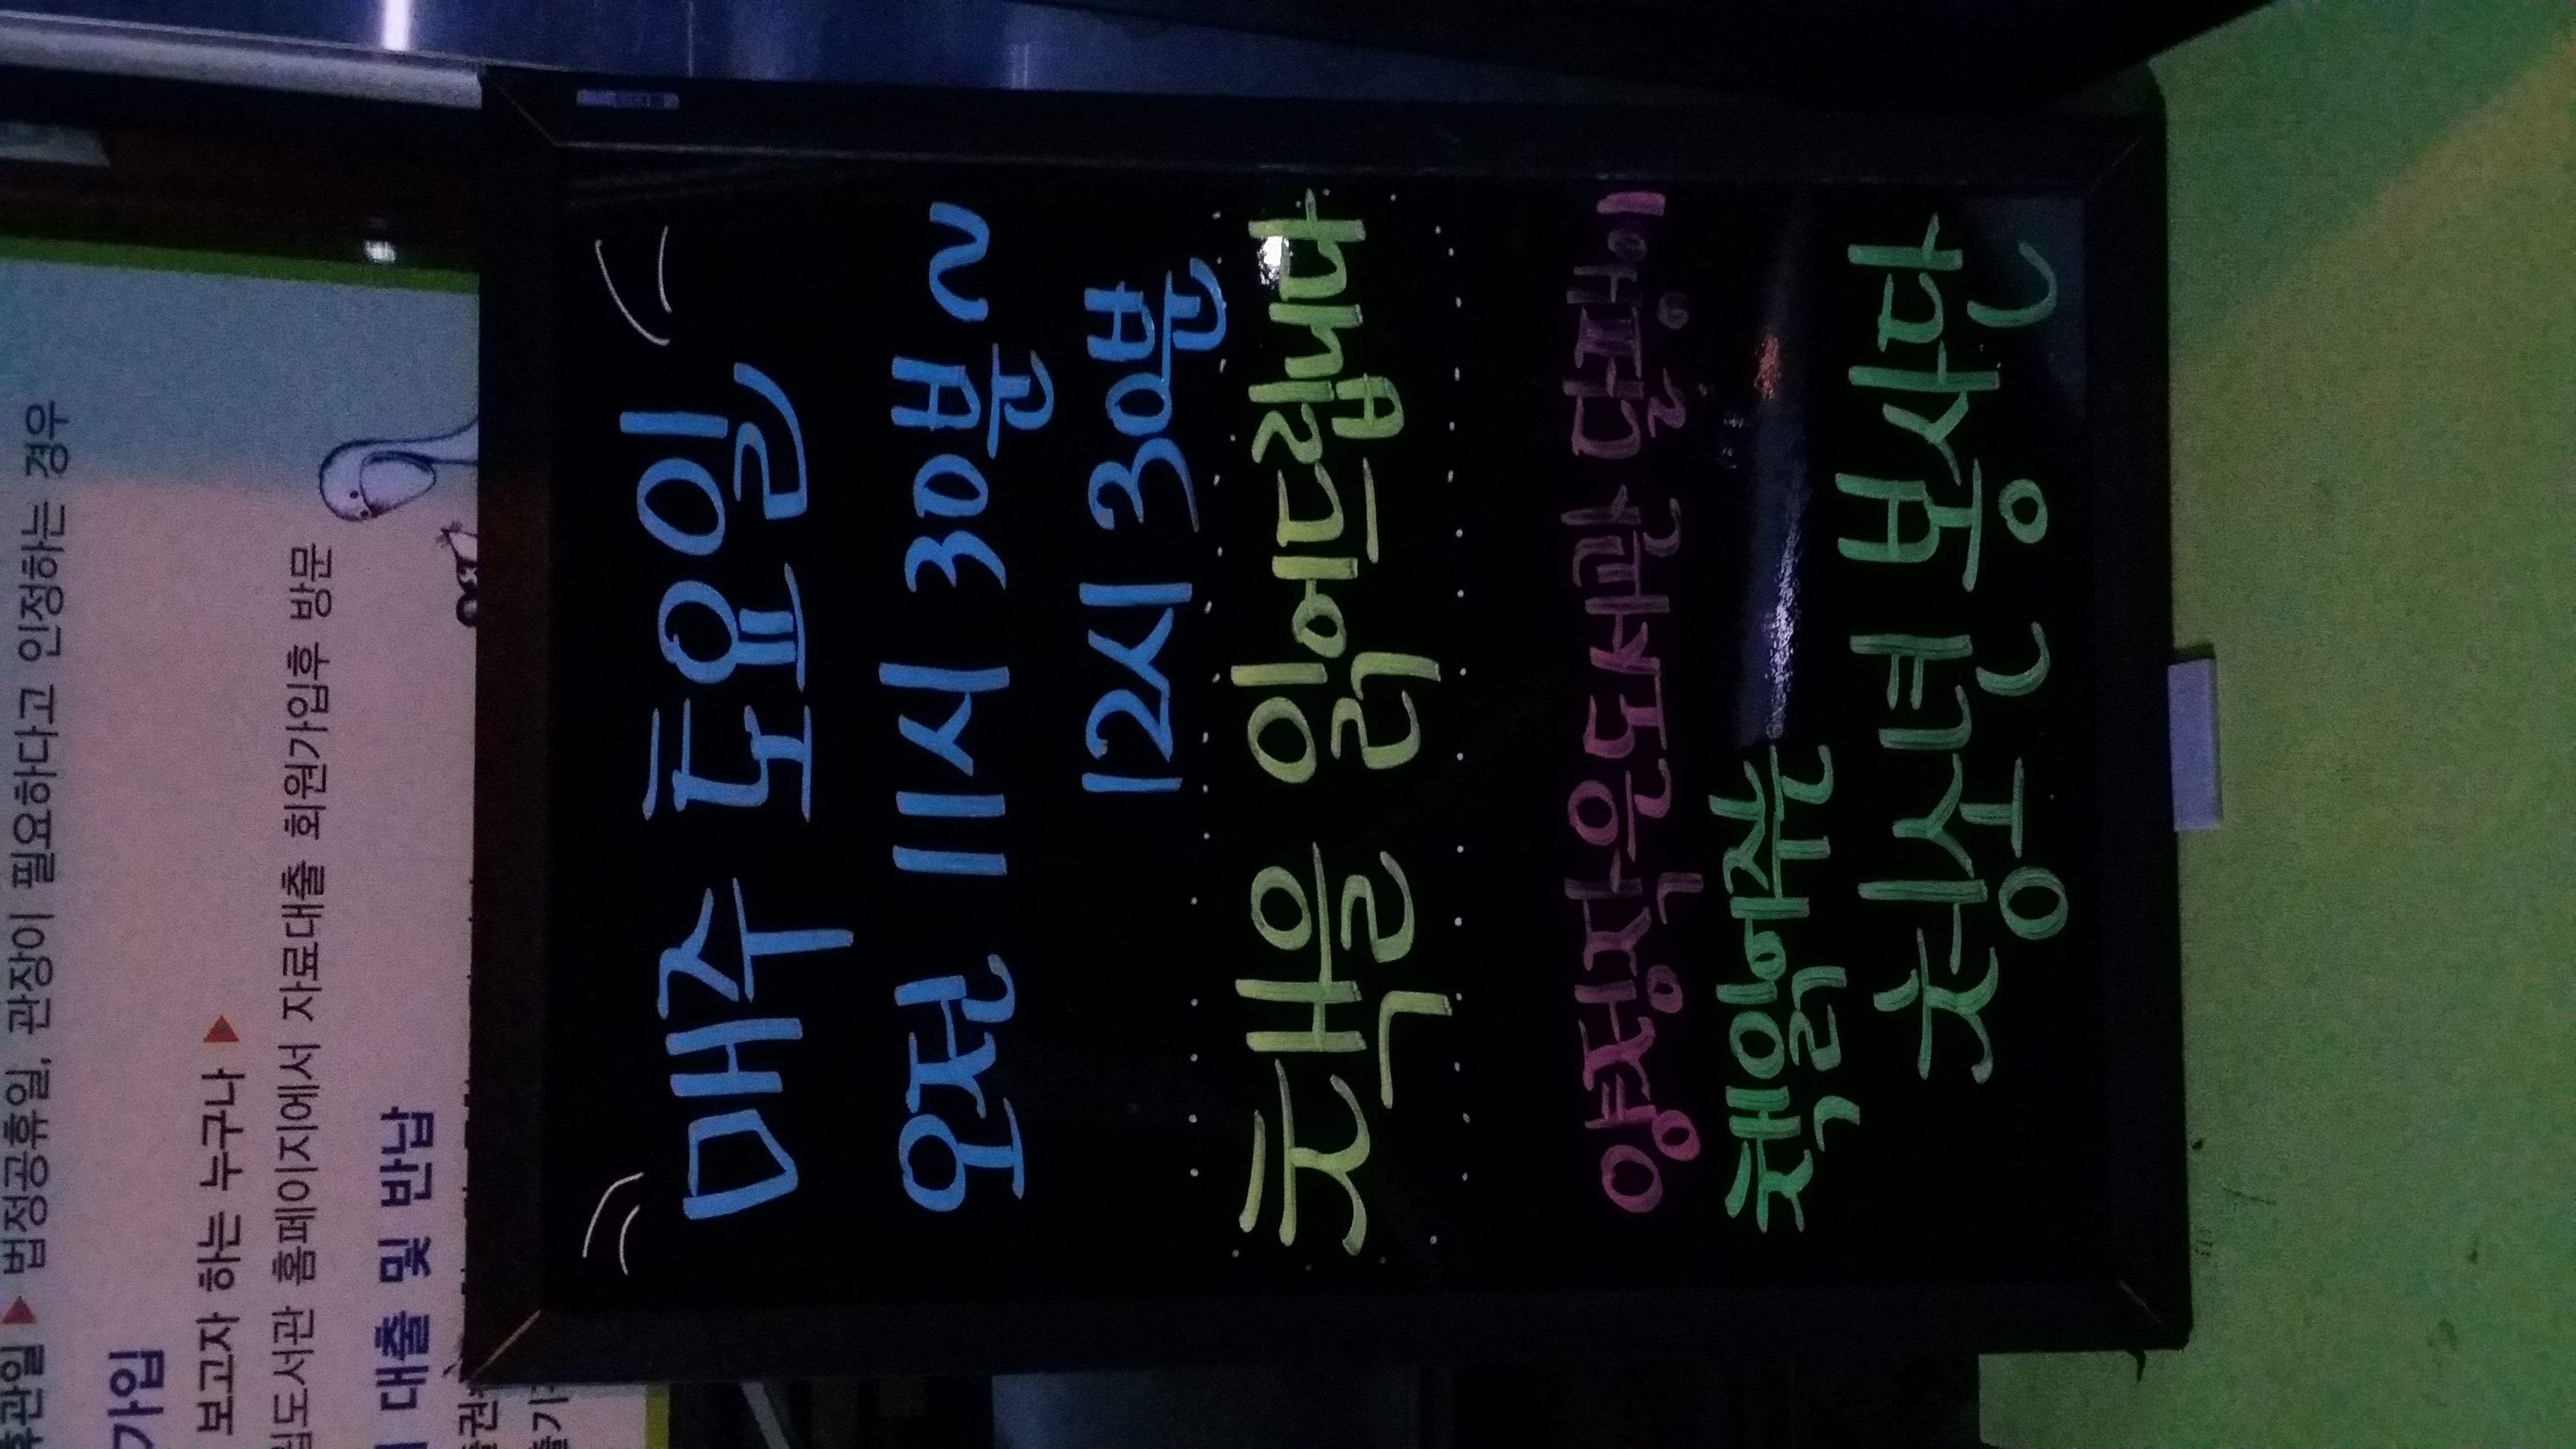 매주 토요일
오전 11시 30분 ~
12시 30분
책을 읽어드립니다
양정작은도서관 달팽이
책읽어주는
청소년 봉사단
휴관일 ▶ 법정공휴일, 관장이 필요하다고 인정하는 경우
가입
보고자 하는 누구나 ▶
립도서관 홈페이지에서 자료대출 회원가입후 방문
대출 및 반납